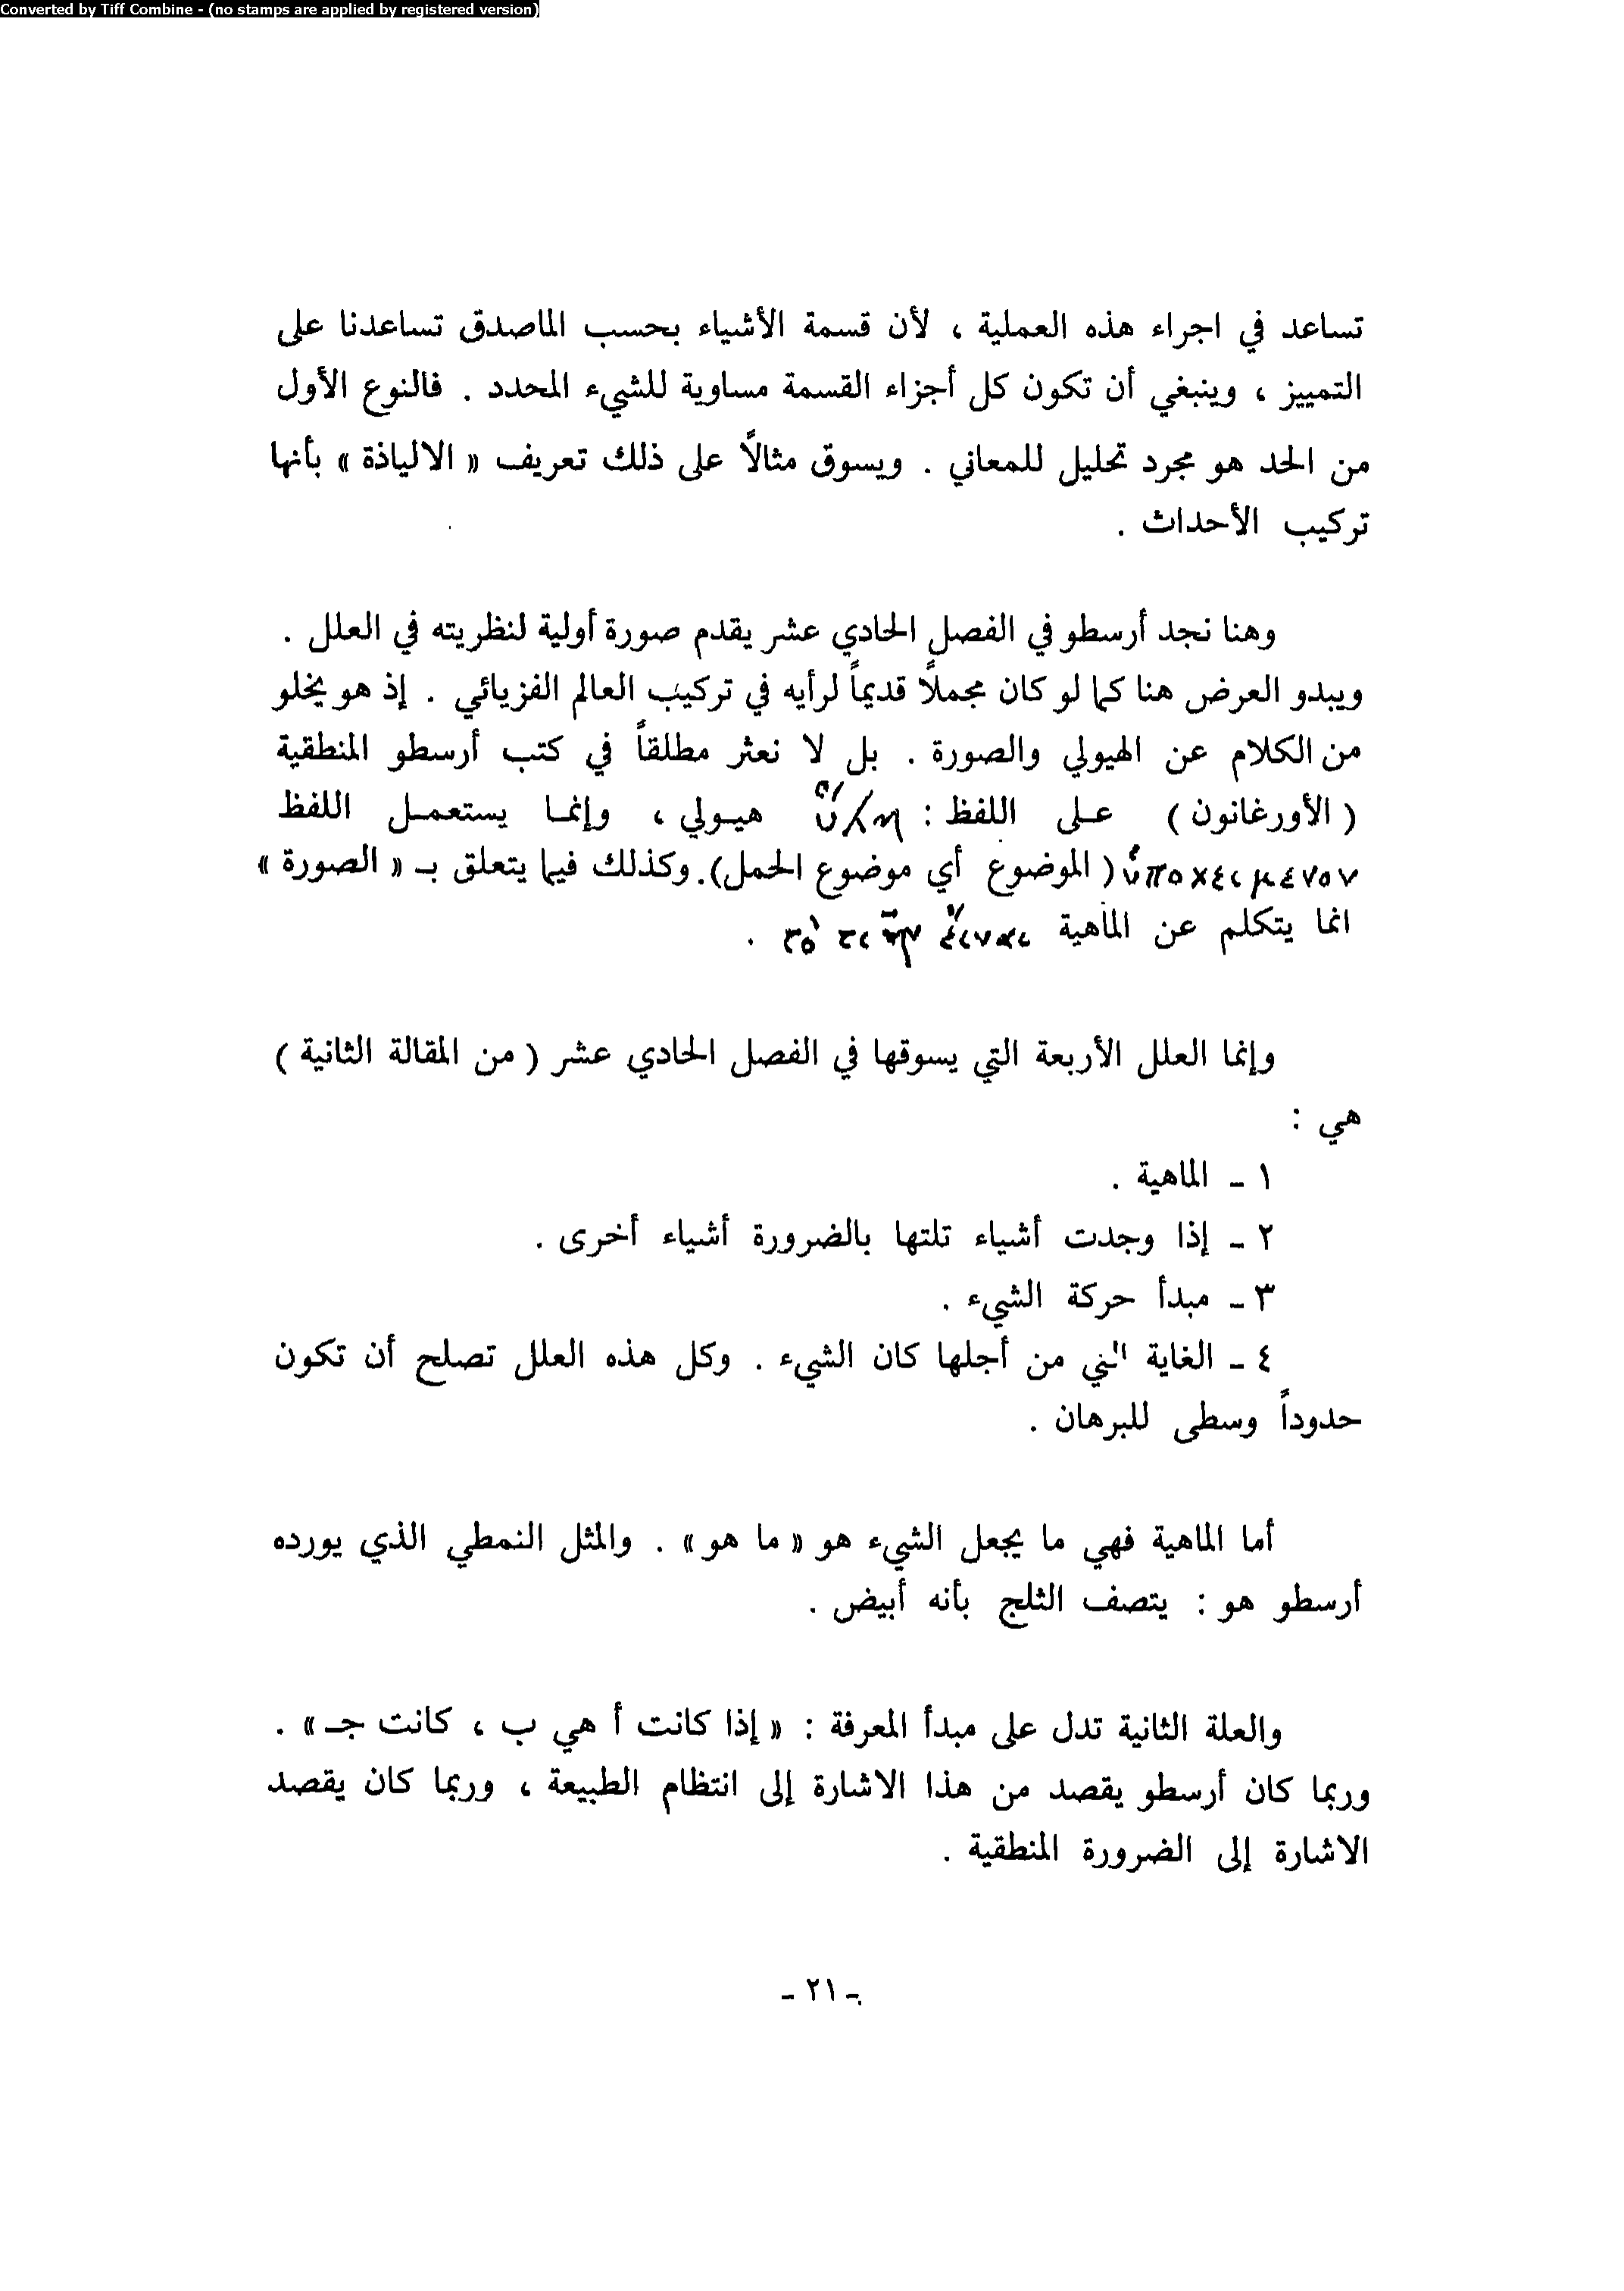 Converted by Tiff Combine - (no stamps are applied by registered version)
تساعد في اجراء هذه العملية ، لأن قسمة الأشياء بحسب الماصدق تساعدنا على
التمييز ، وينبغي أن تكون كل أجزاء القسمة مساوية للشيء المحدد . فالنوع الأول
من الحد هو مجرد تحليل للمعاني . ويسوق مثالاً على ذلك تعريف « الالياذة » بأنها
تركيب الأحداث .
وهنا نجد أرسطو في الفصل الحادي عشر يقدم صورة أولية لنظريته في العلل .
ويبدو العرض هنا كما لو كان مجملاً قديماً لرأيه في تركيب العالم الفزيائي . إذ هو يخلو
من الكلام عن الهيولي والصورة . بل لا نعثر مطلقاً في كتب أرسطو المنطقية
( الأورغانون ) على اللفظ : ὕλη هيولي ، وإنما يستعمل اللفظ
ὑποκείμενον ( الموضوع أي موضوع الحمل ) . وكذلك فيما يتعلق بـ « الصورة »
انما يتكلم عن الماهية τὸ τί ἦν εἶναι .
وإنما العلل الأربعة التي يسوقها في الفصل الحادي عشر ( من المقالة الثانية )
هي :
١ - الماهية .
٢ - إذا وجدت أشياء تلتها بالضرورة أشياء أخرى .
٣ - مبدأ حركة الشيء .
٤ - الغاية التي من أجلها كان الشيء . وكل هذه العلل تصلح أن تكون
حدوداً وسطى للبرهان .
أما الماهية فهي ما يجعل الشيء هو « ما هو » . والمثل النمطي الذي يورده
أرسطو هو : يتصف الثلج بأنه أبيض .
والعلة الثانية تدل على مبدأ المعرفة : « إذا كانت أ هي ب ، كانت جـ » .
وربما كان أرسطو يقصد من هذا الاشارة إلى انتظام الطبيعة ، وربما كان يقصد
الاشارة إلى الضرورة المنطقية .
- ٢١ -